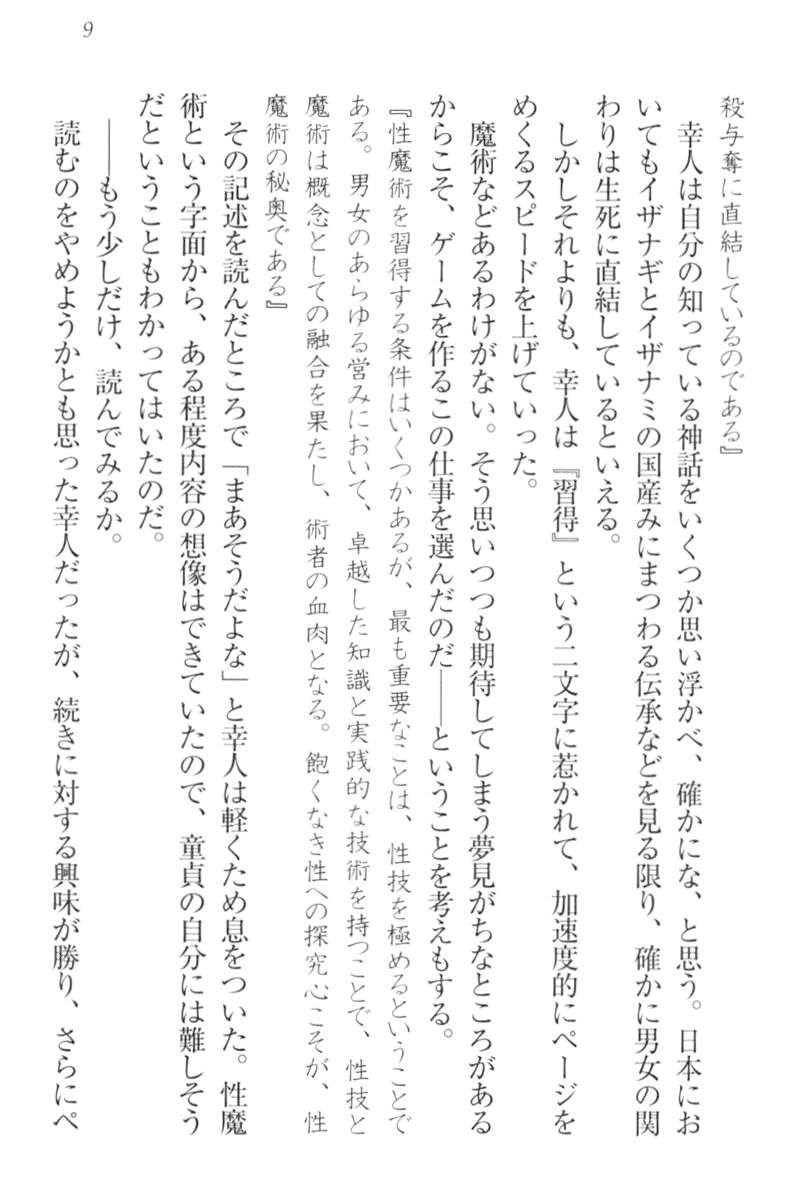 9
殺与奪に直結しているのである』
　幸人は自分の知っている神話をいくつか思い浮かべ、確かにな、と思う。日本にお
いてもイザナギとイザナミの国産みにまつわる伝承などを見る限り、確かに男女の関
わりは生死に直結しているといえる。
　しかしそれよりも、幸人は『習得』という二文字に惹かれて、加速度的にページを
めくるスピードを上げていった。
　魔術などあるわけがない。そう思いつつも期待してしまう夢見がちなところがある
からこそ、ゲームを作るこの仕事を選んだのだ――ということを考えもする。
『性魔術を習得する条件はいくつかあるが、最も重要なことは、性技を極めるということで
ある。男女のあらゆる営みにおいて、卓越した知識と実践的な技術を持つことで、性技と
魔術は概念としての融合を果たし、術者の血肉となる。飽くなき性への探究心こそが、性
魔術の秘奥である』
　その記述を読んだところで「まあそうだよな」と幸人は軽くため息をついた。性魔
術という字面から、ある程度内容の想像はできていたので、童貞の自分には難しそう
だということもわかってはいたのだ。
　――もう少しだけ、読んでみるか。
　読むのをやめようかとも思った幸人だったが、続きに対する興味が勝り、さらにペ